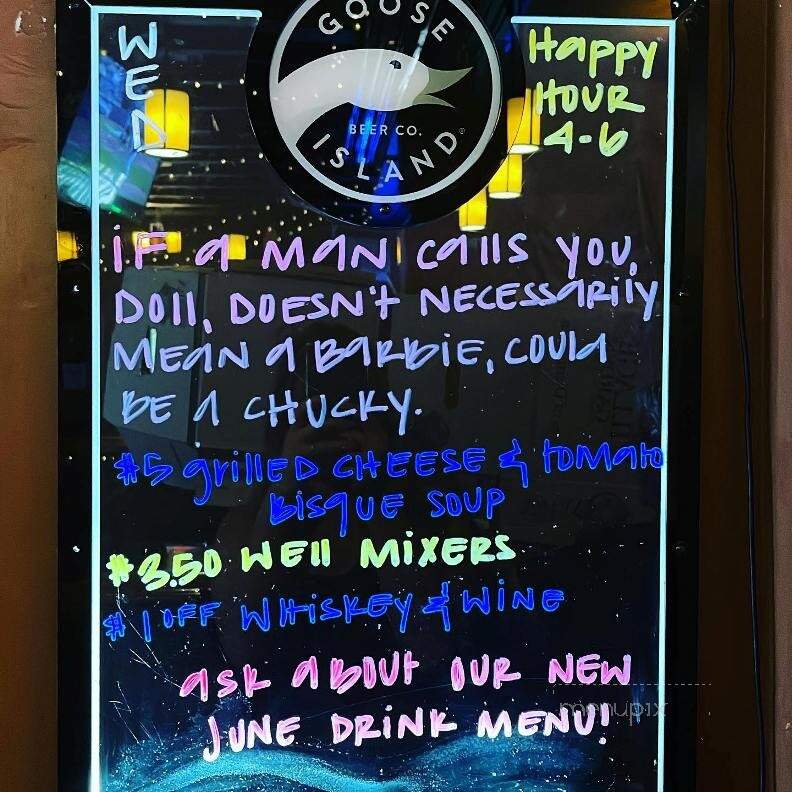 WED
GOOSE
BEER CO.
ISLAND®
Happy
HOUR
4-6
IF a MAN calls you,
DOll, DOESN't NECESSarily
MEAN a BaRbiE, COUld
BE a CHUCKY.
$5 grillED CHEESE & tOMatO
BisqUE SOUP
$3.50 WEll MiXERS
$1 OFF WHiSKEY & WiNE
ask aBOUt OUR NEW
JUNE DRINK MENU!
menupix